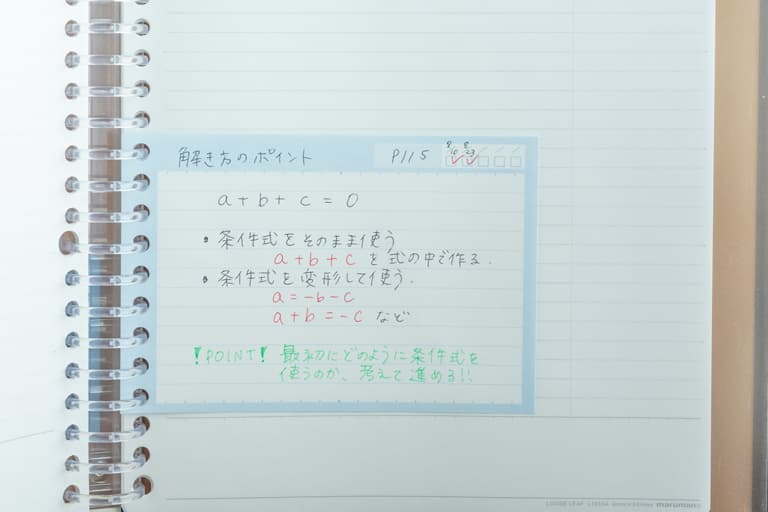 解き方のポイント P115
a + b + c = 0
• 条件式をそのまま使う
a + b + c を式の中で作る.
• 条件式を変形して使う.
a = -b - c
a + b = -c など
!POINT! 最初にどのように条件式を
使うのか、考えて進める!!
LOOSE LEAF
maruman